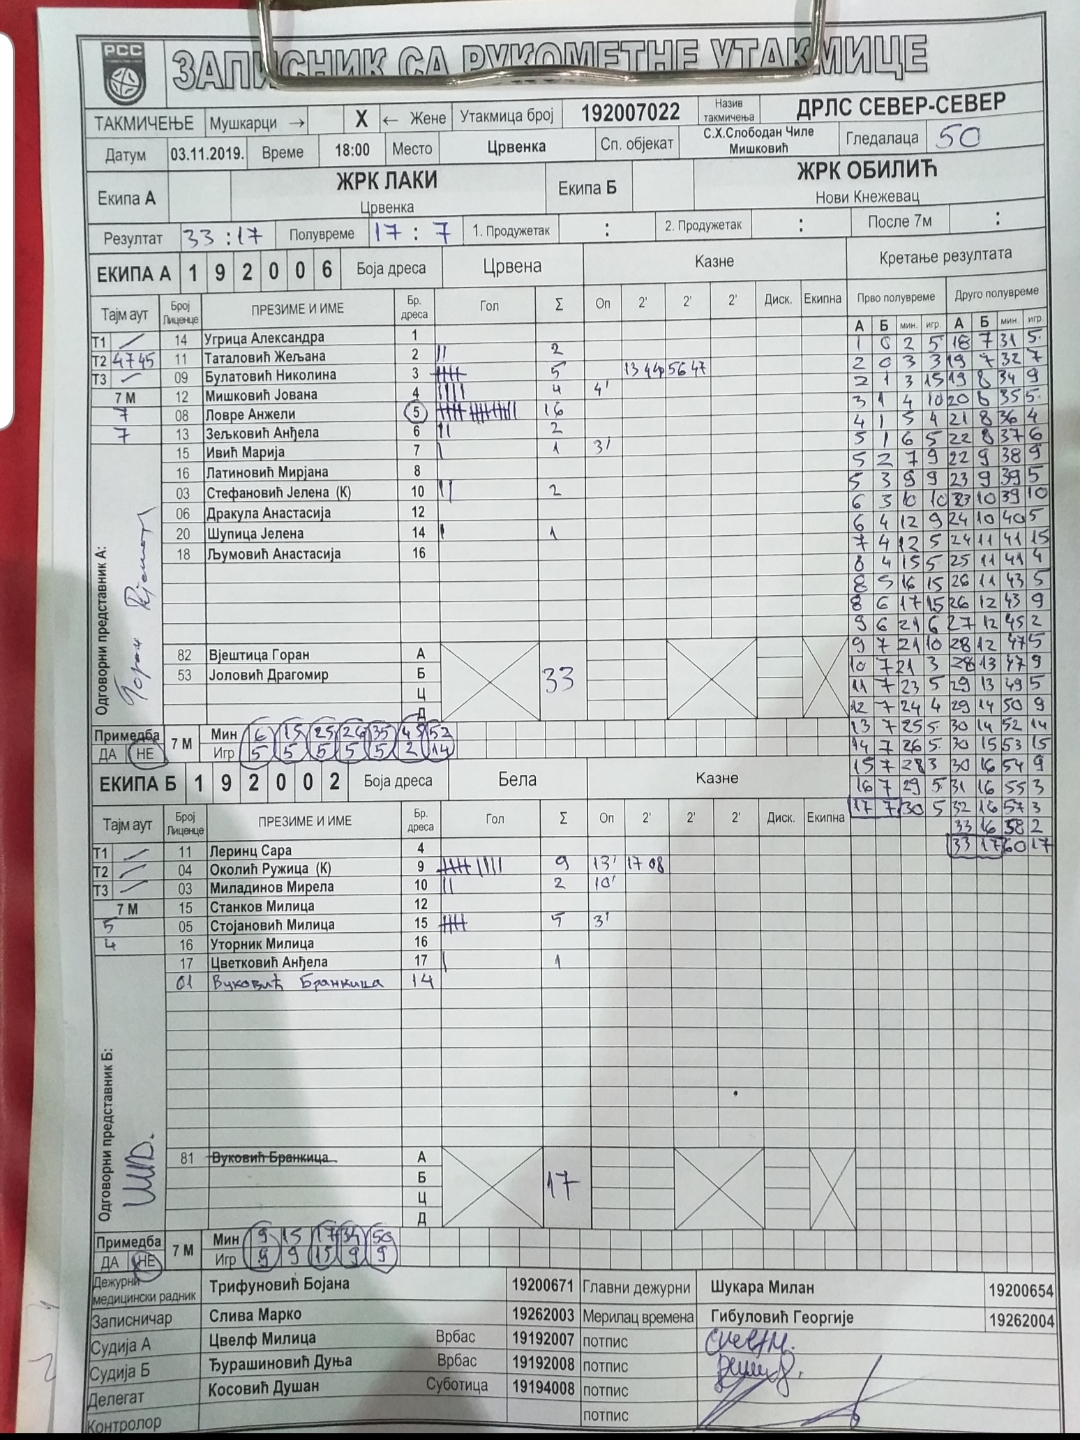 РСС
ЗАПИСНИК СА РУКОМЕТНЕ УТАКМИЦЕ
ТАКМИЧЕЊЕ Мушкарци → X ← Жене Утакмица број 192007022 Назив такмичења ДРЛС СЕВЕР-СЕВЕР
Датум 03.11.2019. Време 18:00 Место Црвенка Сп. објекат С.Х.Слободан Чиле Мишковић Гледалаца 50
Екипа А ЖРК ЛАКИ Црвенка Екипа Б ЖРК ОБИЛИЋ Нови Кнежевац
Резултат 33 : 17 Полувреме 17 : 7 1. Продужетак : 2. Продужетак : После 7м :
ЕКИПА А 1 9 2 0 0 6 Боја дреса Црвена Казне Кретање резултата
Тајм аут Број Лиценце ПРЕЗИМЕ И ИМЕ Бр. дреса Гол Σ Оп 2' 2' 2' Диск. Екипна Прво полувреме Друго полувреме
А Б мин. игр. А Б мин. игр.
Т1 14 Угрица Александра 1
Т2 4745 11 Таталовић Жељана 2 2
Т3 09 Булатовић Николина 3 5 1344 5647
7 М 12 Мишковић Јована 4 4 4'
7 08 Ловре Анжели 5 16
7 13 Зељковић Анђела 6 2
15 Ивић Марија 7 1 3'
16 Латиновић Мирјана 8
03 Стефановић Јелена (К) 10 2
06 Дракула Анастасија 12
20 Шупица Јелена 14 1
18 Љумовић Анастасија 16
1 0 2 5 18 7 31 5
2 0 3 3 19 7 32 7
2 1 3 15 19 8 34 9
3 1 4 10 20 8 35 5
4 1 5 4 21 8 36 4
5 1 6 5 22 8 37 6
5 2 7 9 22 9 38 9
5 3 9 9 23 9 39 5
6 3 10 10 23 10 39 10
6 4 12 9 24 10 40 5
7 4 13 5 24 11 41 15
8 4 15 5 25 11 41 4
8 5 16 15 26 11 43 5
8 6 17 15 26 12 43 9
9 6 21 6 27 12 45 2
9 7 21 10 28 12 47 5
10 7 21 3 28 13 47 9
11 7 23 5 29 13 49 5
12 7 24 4 29 14 50 9
13 7 25 5 30 14 52 14
14 7 26 5 30 15 53 15
15 7 28 3 30 16 54 9
16 7 29 5 31 16 55 3
17 7 30 5 32 16 57 3
33 16 58 2
33 17 60 17
Одговорни представник А:
82 Вјештица Горан А
53 Јоловић Драгомир Б 33
Ц
Д
Примедба ДА НЕ 7 М
Мин 6 15 25 26 35 45 52
Игр 5 5 5 5 5 2 14
ЕКИПА Б 1 9 2 0 0 2 Боја дреса Бела Казне
Тајм аут Број Лиценце ПРЕЗИМЕ И ИМЕ Бр. дреса Гол Σ Оп 2' 2' 2' Диск. Екипна
Т1 11 Леринц Сара 4
Т2 04 Околић Ружица (К) 9 9 13' 17 08
Т3 03 Миладинов Мирела 10 2 10'
7 М 15 Станков Милица 12
5 05 Стојановић Милица 15 5 3'
4 16 Уторник Милица 16
17 Цветковић Анђела 17 1
01 Вуковић Бранкица 14
Одговорни представник Б:
81 Вуковић Бранкица А
Б 17
Ц
Д
Примедба ДА НЕ 7 М
Мин 9 15 17 34 50
Игр 9 9 15 9 9
Дежурни медицински радник Трифуновић Бојана 19200671 Главни дежурни Шукара Милан 19200654
Записничар Слива Марко 19262003 Мерилац времена Гибуловић Георгије 19262004
Судија А Цвелф Милица Врбас 19192007 потпис
Судија Б Ђурашиновић Дуња Врбас 19192008 потпис
Делегат Косовић Душан Суботица 19194008 потпис
Контролор потпис